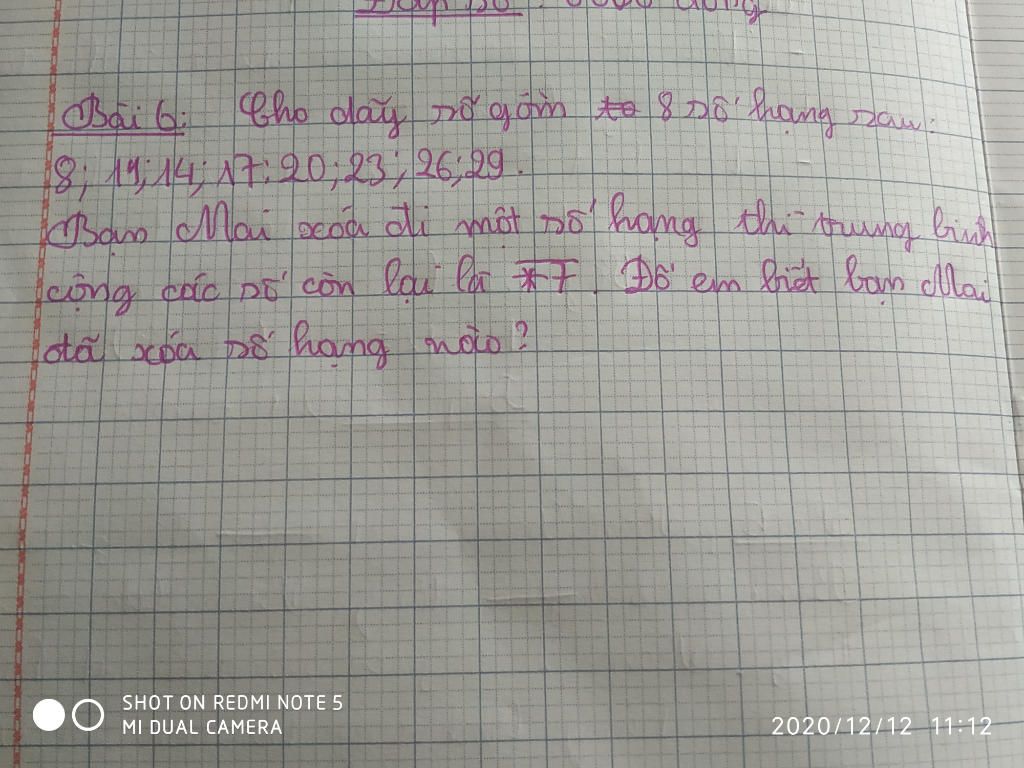 Đáp số: 6000 đồng
Bài 6: Cho dãy số gồm 8 số hạng sau:
8; 11; 14; 17; 20; 23; 26; 29.
Bạn Mai xóa đi một số hạng thì trung bình
cộng các số còn lại là *7. Đố em biết bạn Mai
đã xóa số hạng nào?
SHOT ON REDMI NOTE 5
MI DUAL CAMERA
2020/12/12 11:12